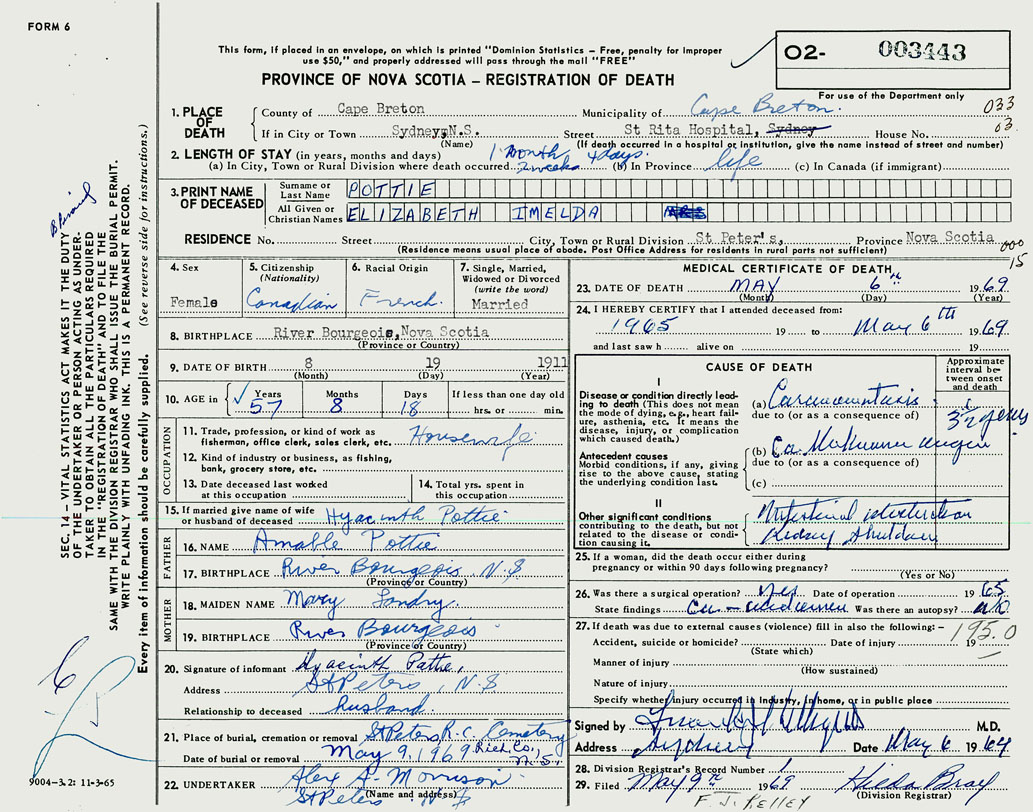 FORM 6
This form, if placed in an envelope, on which is printed "Dominion Statistics – Free, penalty for improper
use $50," and properly addressed will pass through the mail "FREE"
O2- 003443
PROVINCE OF NOVA SCOTIA – REGISTRATION OF DEATH
For use of the Department only
033
03
1. PLACE OF DEATH
County of Cape Breton Municipality of Cape Breton.
If in City or Town Sydney,N.S. Street St Rita Hospital, Sydney House No.
(Name) (If death occurred in a hospital or institution, give the name instead of street and number)
2. LENGTH OF STAY (in years, months and days) 1 month 4 days.
(a) In City, Town or Rural Division where death occurred 2 weeks (b) In Province life (c) In Canada (if immigrant)
3. PRINT NAME OF DECEASED
Surname or Last Name POTTIE
All Given or Christian Names ELIZABETH IMELDA MRS
RESIDENCE No. Street City, Town or Rural Division St Peter's, Province Nova Scotia
(Residence means usual place of abode. Post Office Address for residents in rural parts not sufficient)
000
15
4. Sex Female
5. Citizenship (Nationality) Canadian
6. Racial Origin French.
7. Single, Married, Widowed or Divorced (write the word) Married
8. BIRTHPLACE River Bourgeois,Nova Scotia
(Province or Country)
9. DATE OF BIRTH 8 19 1911
(Month) (Day) (Year)
10. AGE in Years 57 Months 8 Days 18 If less than one day old
hrs. or min.
OCCUPATION
11. Trade, profession, or kind of work as
fisherman, office clerk, sales clerk, etc. Housewife
12. Kind of industry or business, as fishing,
bank, grocery store, etc.
13. Date deceased last worked
at this occupation
14. Total yrs. spent in
this occupation
15. If married give name of wife
or husband of deceased Hyacinth Pottie
FATHER
16. NAME Amable Pottie
17. BIRTHPLACE River Bourgeois, N.S
(Province or Country)
MOTHER
18. MAIDEN NAME Mary Landry.
19. BIRTHPLACE River Bourgeois
(Province or Country)
20. Signature of informant Hyacinth Pottie,
Address St Peters, N.S
Relationship to deceased husband.
21. Place of burial, cremation or removal St Peters R.C. Cemetery
Date of burial or removal May 9, 1969 Rich. Co., N.S.
22. UNDERTAKER Alex A. Morrison
(Name and address)
St Peters N S
MEDICAL CERTIFICATE OF DEATH
23. DATE OF DEATH MAY 6th 1969
(Month) (Day) (Year)
24. I HEREBY CERTIFY that I attended deceased from:
1965 19 to May 6th 1969
and last saw h alive on 19
CAUSE OF DEATH
Approximate interval between onset and death
I
Disease or condition directly leading to death (This does not mean the mode of dying, e.g., heart failure, asthenia, etc. It means the disease, injury, or complication which caused death.)
(a) Carcinomatosis
due to (or as a consequence of)
3½ years
Antecedent causes
Morbid conditions, if any, giving rise to the above cause, stating the underlying condition last.
(b) Ca.
due to (or as a consequence of)
(c)
II
Other significant conditions
contributing to the death, but not related to the disease or condition causing it.
Intestinal obstruction
Kidney shutdown
25. If a woman, did the death occur either during
pregnancy or within 90 days following pregnancy?
(Yes or No)
26. Was there a surgical operation? yes Date of operation 1965
State findings Was there an autopsy? no
27. If death was due to external causes (violence) fill in also the following:–
195.0
Accident, suicide or homicide? Date of injury 19
(State which)
Manner of injury
(How sustained)
Nature of injury
Specify whether injury occurred in industry, in home, or in public place
Signed by M.D.
Address Sydney Date May 6 1969
28. Division Registrar's Record Number 1
29. Filed May 9th 1969 Hilda Bray
(Division Registrar)
F. J. KELLEY
9004–3.2: 11-3-65
SEC. 14 – VITAL STATISTICS ACT MAKES IT THE DUTY
OF THE UNDERTAKER OR PERSON ACTING AS UNDER-
TAKER TO OBTAIN ALL THE PARTICULARS REQUIRED
IN THE "REGISTRATION OF DEATH" AND TO FILE THE
SAME WITH THE DIVISION REGISTRAR WHO SHALL ISSUE THE BURIAL PERMIT.
WRITE PLAINLY WITH UNFADING INK. THIS IS A PERMANENT RECORD.
Every item of information should be carefully supplied. (See reverse side for instructions.)